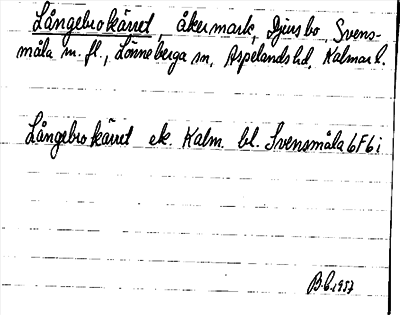 Långebrokärret, åkermark, Djursbo, Svens-
måla m. fl., Lönneberga sn, Aspelands hd, Kalmar l.
Långebrokärret ek. Kalm. bl. Svensmåla 6F6i
1957